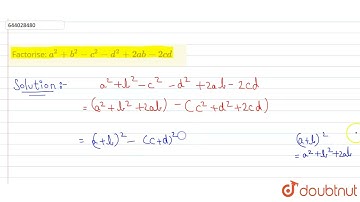 644028480
Factorise: a² + b² − c² − d² + 2ab − 2cd
Solution:- a²+b²-c²-d²+2ab-2cd
= (a²+b²+2ab) - (c²+d²+2cd)
= (a+b)² - (c+d)²
(a+b)²
= a²+b²+2ab
doubtnut